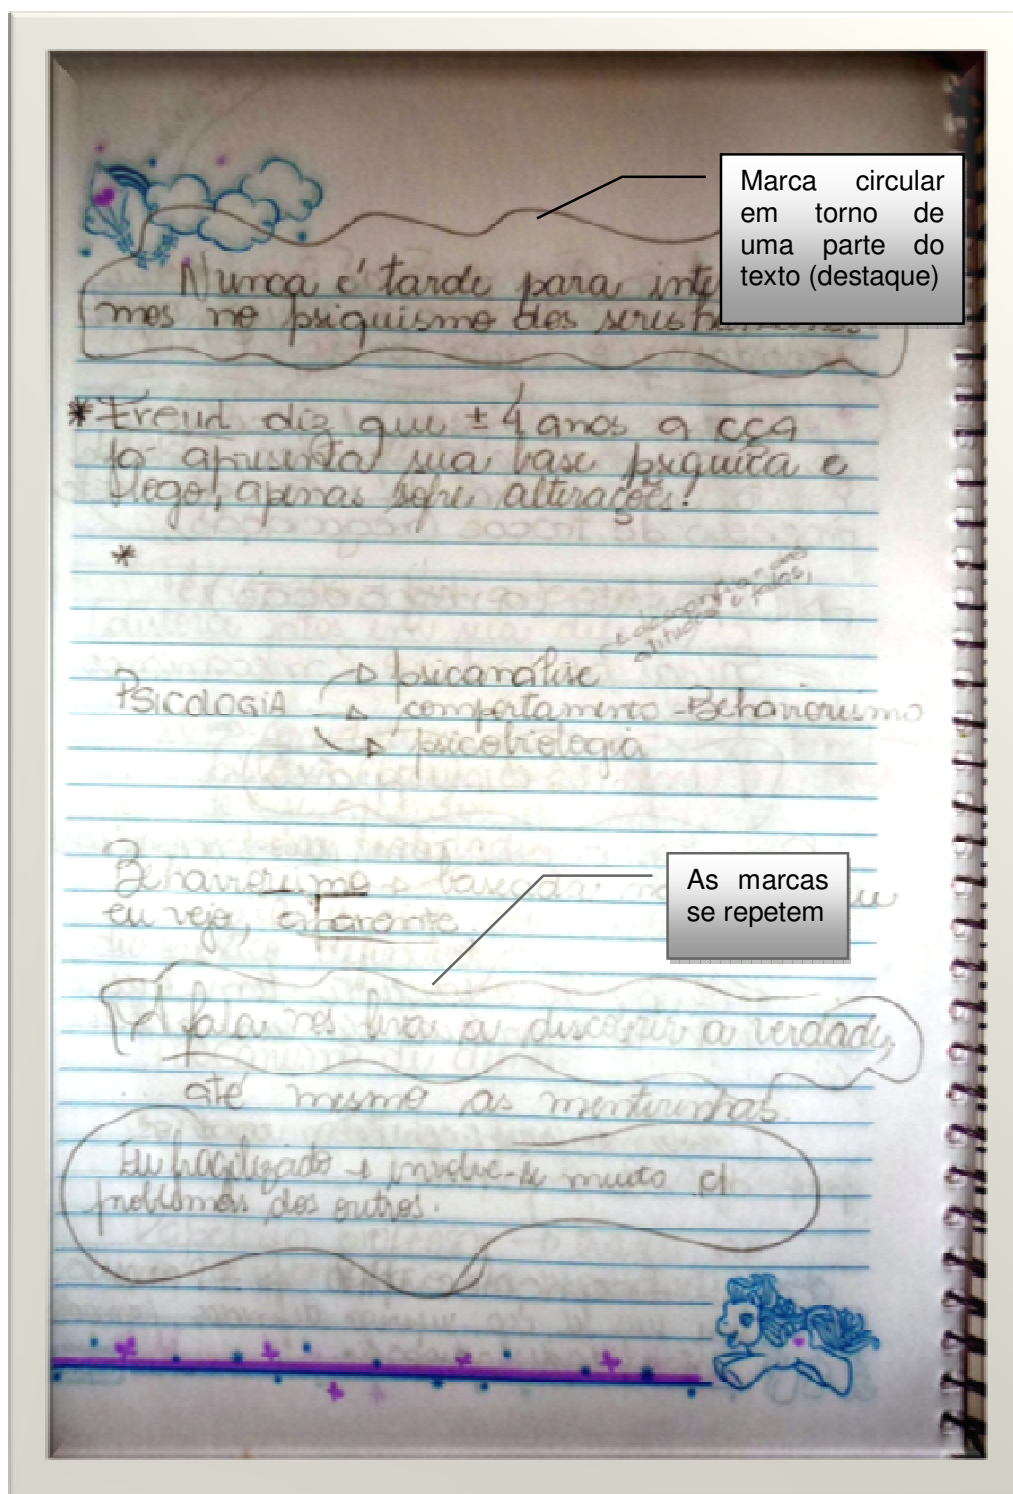 Marca circular
em torno de
uma parte do
texto (destaque)
Nunca é tarde para
mos no psiquismo dos seres
* Freud diz que ± 4 anos a cça
já apresenta sua base psiquica e
logo, apenas sofre alterações!
*
atitudes e falas,
PSICOLOGIA
psicanálise
comportamento - Behaviorismo
psicobiologia
Behaviorismo → baseada
eu vejo,
As marcas
se repetem
A fala nos leva a descobrir a verdade,
até mesmo as mentirinhas.
Eu fragilizado → envolve-se muito c/
problemas dos outros.